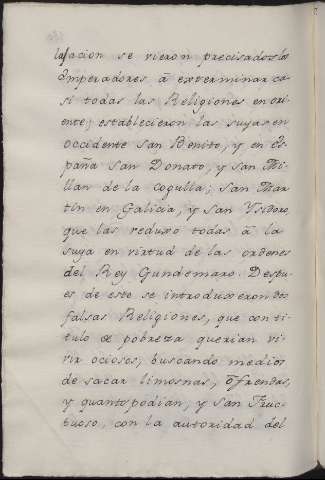 lajacion se vieron precisados los
Emperadores, á exterminar ca-
si todas las Religiones en ori-
ente; establecieron las suyas en
occidente San Benito, y en Es-
paña San Donato, y San Mi-
llan de la Cogulla; San Mar-
tin en Galicia, y San Ysidoro,
que las reduxo todas á la
suya en virtud de las ordenes
del Rey Gundemaro. Despu-
es de este se introduxeron
falsas Religiones, que con ti-
tulo de pobreza querian vi-
vir ociosos, buscando medios
de sacar limosnas, ofrendas,
y quanto podian; y San Fruc-
tuoso, con la autoridad del